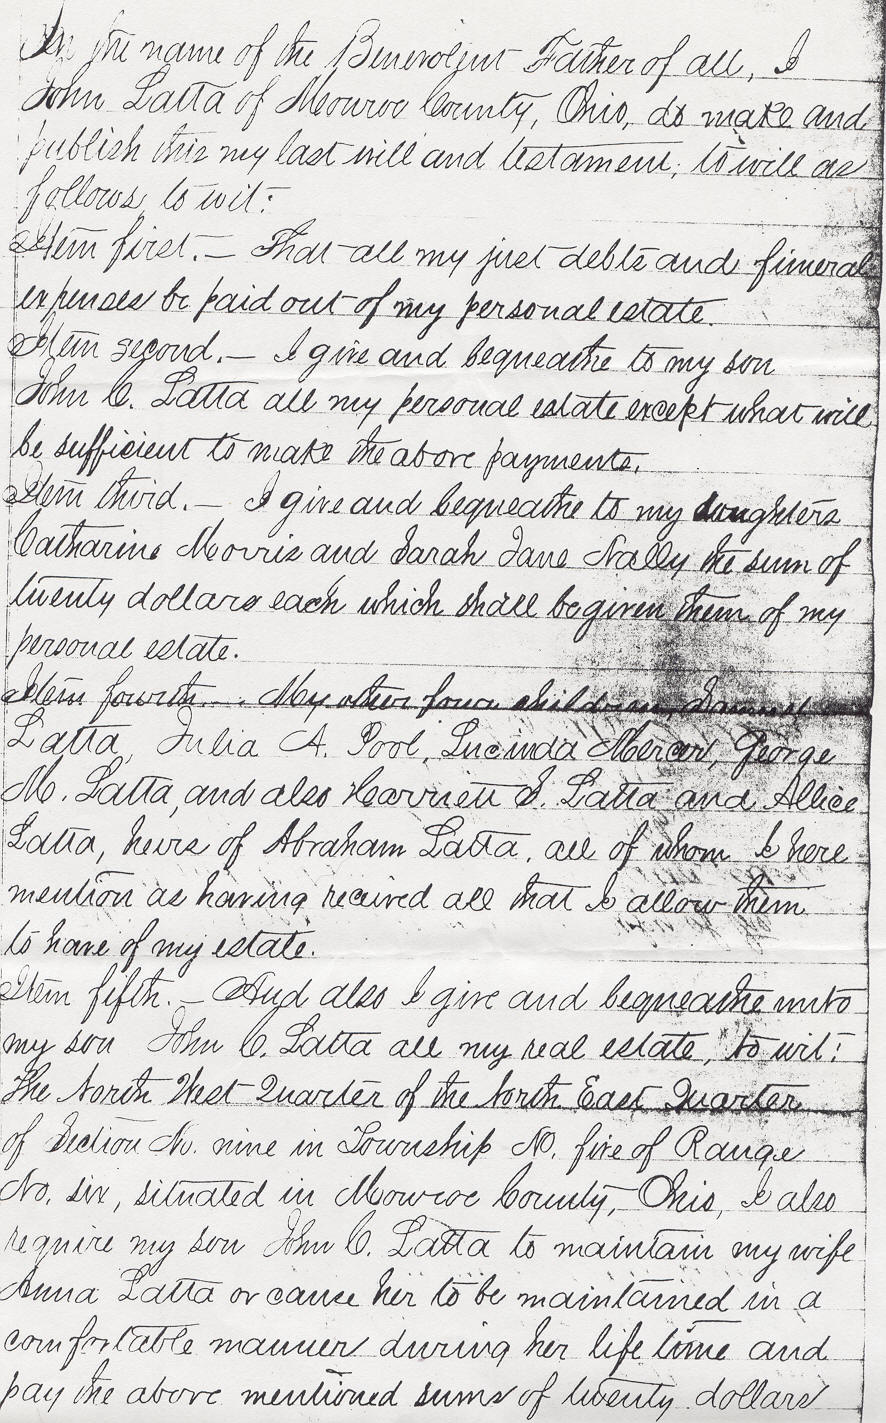 In the name of the Benevolent Father of all, I
John Latta of Monroe County, Ohio, do make and
publish this my last will and testament, to will as
follows, to wit:
Item first.— That all my just debts and funeral
expenses be paid out of my personal estate.
Item second.— I give and bequeathe to my son
John C. Latta all my personal estate except what will
be sufficient to make the above payments.
Item thirid.— I give and bequeathe to my daughters
Catharine Morris and Sarah Jane Nally the sum of
twenty dollars each which shall be given them of my
personal estate.
Item fourth.— My other four children, Samuel
Latta, Julia A. Pool, Lucinda Mercer, George
M. Latta, and also Harriett I. Latta and Allice
Latta, heirs of Abraham Latta, all of whom I here
mention as having recieved all that I allow them
to have of my estate.
Item fifth.— And also I give and bequeathe unto
my son John C. Latta all my real estate, to wit:
The North West Quarter of the North East Quarter
of Section No. nine in Township No. five of Range
No. six, situated in Monroe County, Ohio, I also
require my son John C. Latta to maintain my wife
Anna Latta or cause her to be maintained in a
comfortable manner during her life time and
pay the above mentioned sums of twenty dollars